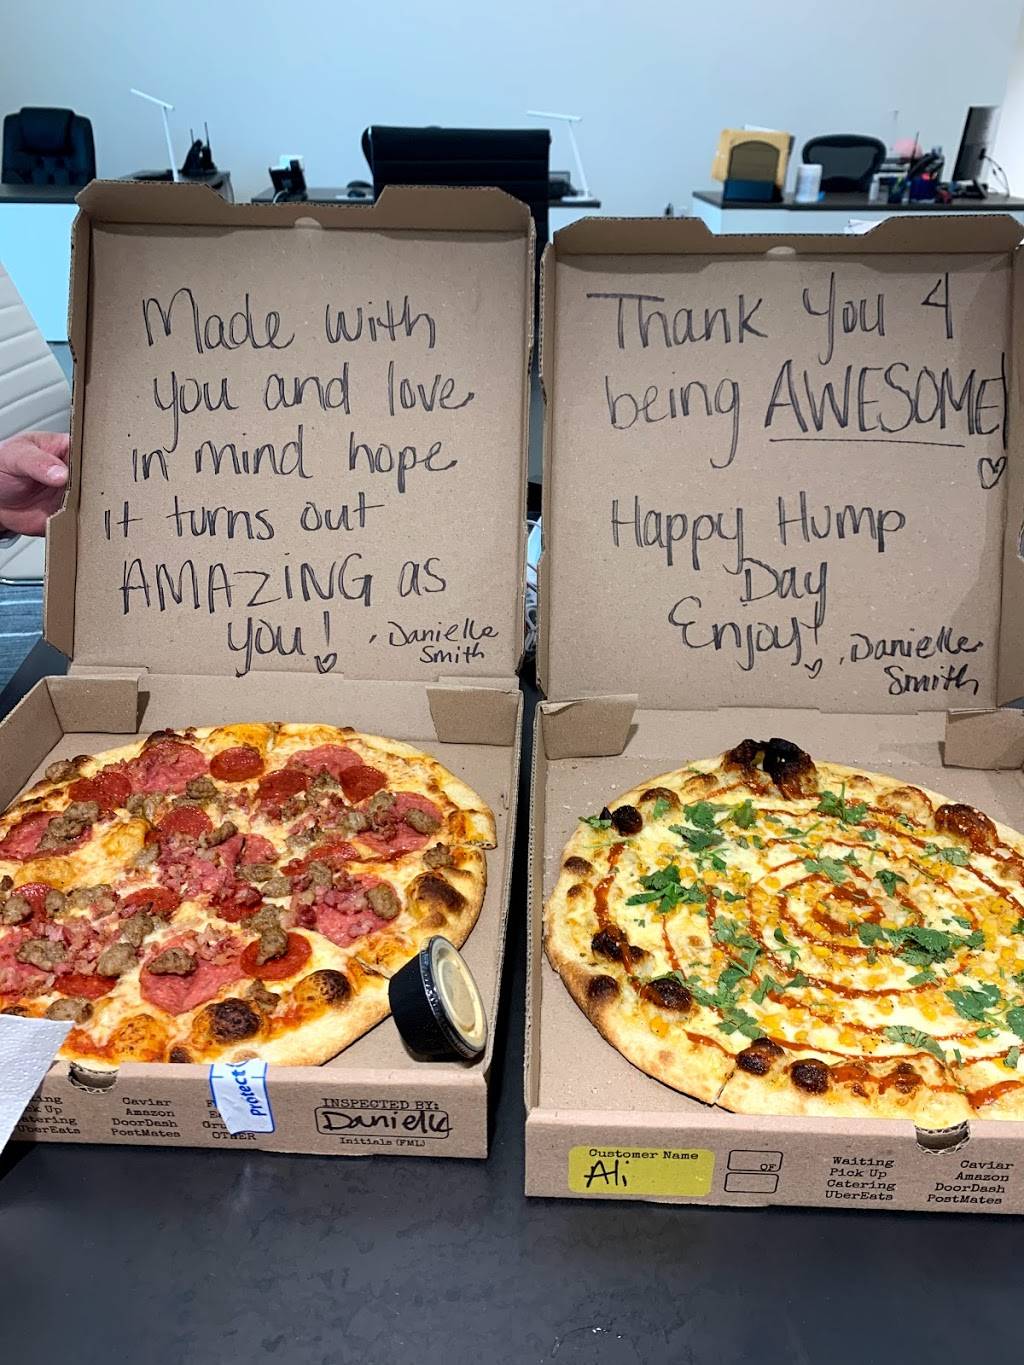 Made with
you and love
in mind hope
it turns out
AMAZING as
you!
Danielle
Smith
Thank You 4
being AWESOME!
Happy Hump
Day
Enjoy!
Danielle
Smith
Caviar
Amazon
DoorDash
PostMates
Up
UberEats
OTHER
protect
INSPECTED BY:
Danielle
Initials (FML)
Customer Name
Ali
OF
Waiting
Pick Up
Catering
UberEats
Caviar
Amazon
DoorDash
PostMates